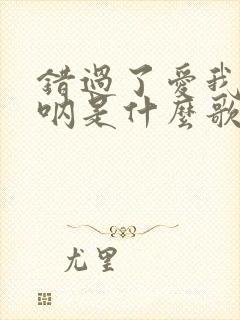 錯過了愛我
吶是什麼歌
尤里